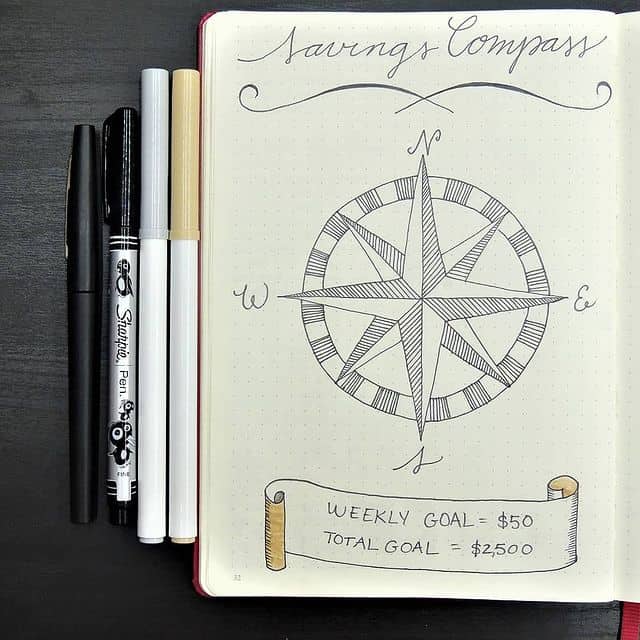 Savings Compass
N
W
E
S
WEEKLY GOAL = $50
TOTAL GOAL = $2,500
Sharpie
Pen.
FINE